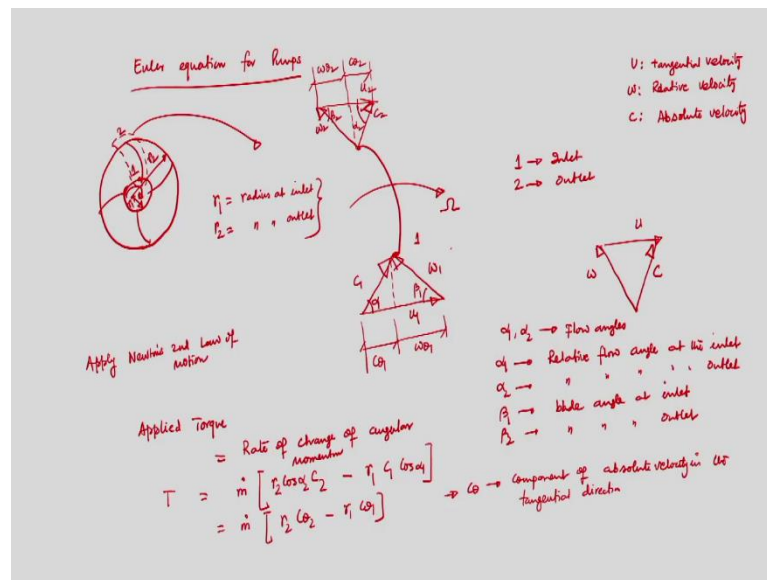 Euler equation for Pumps
U: tangential velocity
W: Relative velocity
C: Absolute velocity
Wθ2 Cθ2
U2
W2 β2 α2 C2
2
1
r2
r1
1 → Inlet
2 → Outlet
r1 = radius at inlet
r2 = " " outlet
Ω
1
C1 W1
α1 β1
U1
Cθ1 Wθ1
U
W C
α1, α2 → Flow angles
α1 → Relative flow angle at the inlet
α2 → " " " " " outlet
β1 → blade angle at inlet
β2 → " " " outlet
Apply Newton's 2nd Law of
motion
Applied Torque
= Rate of change of angular
momentum
T = ṁ [r2 Cosα2 C2 - r1 C1 Cosα1]
= ṁ [r2 Cθ2 - r1 Cθ1]
→ Cθ → Component of absolute velocity in the
tangential direction